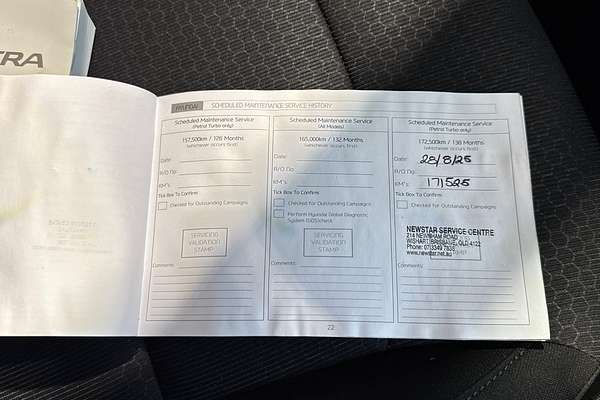 TRA
HYUNDAI SCHEDULED MAINTENANCE SERVICE HISTORY
Scheduled Maintenance Service
(Petrol Turbo only)
157,500km / 126 Months
(whichever occurs first)
Date:
R/O No:
KM's:
Tick Box To Confirm
Checked for Outstanding Campaigns
SERVICING
VALIDATION
STAMP
Comments:
Scheduled Maintenance Service
(All Models)
165,000km / 132 Months
(whichever occurs first)
Date:
R/O No:
KM's:
Tick Box To Confirm
Checked for Outstanding Campaigns
Perform Hyundai Global Diagnostic
System (GDS) check
SERVICING
VALIDATION
STAMP
Comments:
Scheduled Maintenance Service
(Petrol Turbo only)
172,500km / 138 Months
(whichever occurs first)
Date: 28/8/25
R/O No:
KM's: 171525
Tick Box To Confirm
Checked for Outstanding Campaigns
NEWSTAR SERVICE CENTRE
214 NEWNHAM ROAD
WISHART BRISBANE, QLD 4122
Phone: 07 3349 7838
www.newstar.net.au
Comments:
22